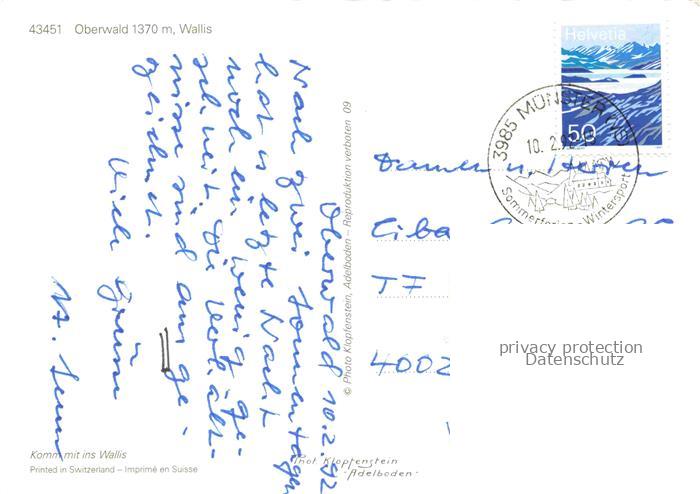 43451 Oberwald 1370 m, Wallis
Oberwald 10.2.92
Nach zwei Sonnentagen
hat es letzte Nacht
noch ein wenig ge-
schneit. Die Verhält-
nisse sind ausge-
zeichnet.
Viele Grüsse
© Photo Klopfenstein, Adelboden – Reproduktion verboten 09
Komm mit ins Wallis
Printed in Switzerland – Imprimé en Suisse
Phot. Klopfenstein
-Adelboden-
Helvetia
50
3985 MÜNSTER
10.2.92
Sommerferien - Wintersport
Damen u. Herren
Ciba
TF
4002
privacy protection
Datenschutz